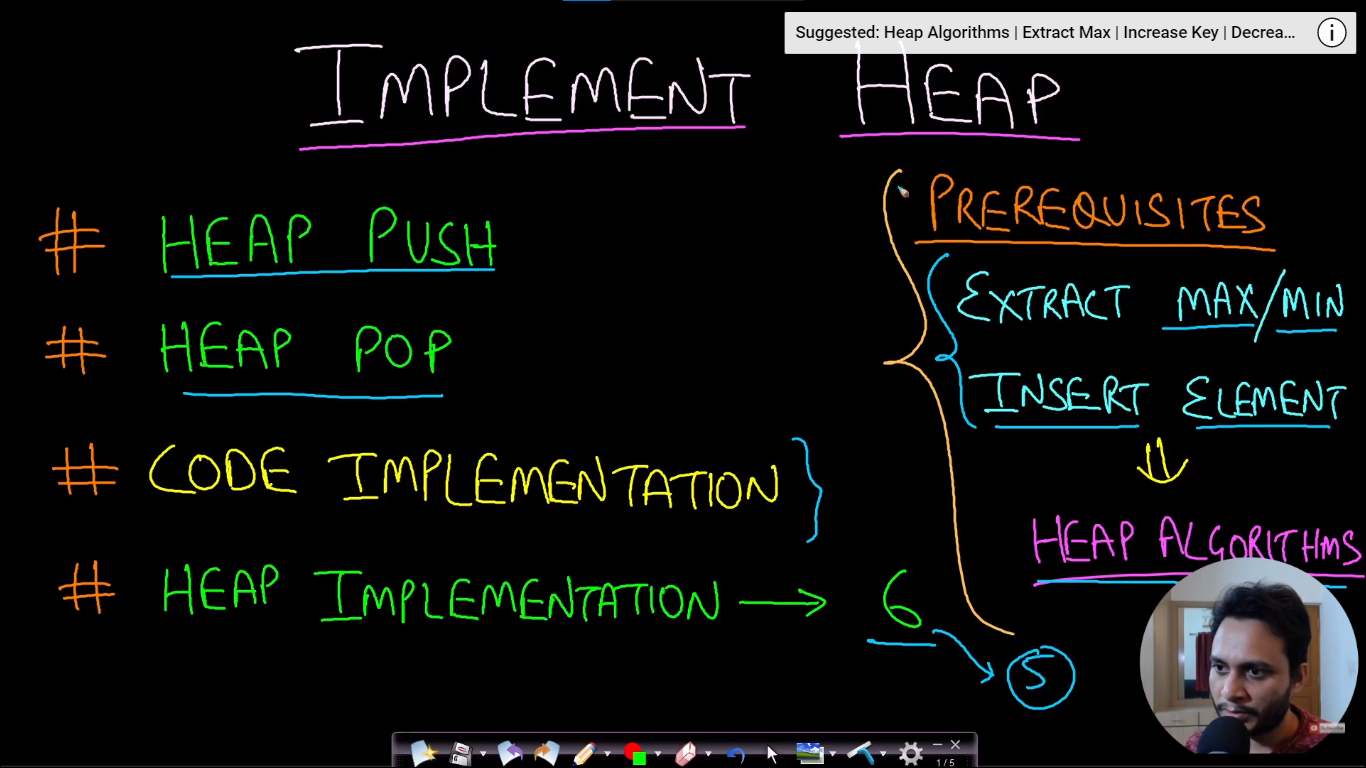 Suggested: Heap Algorithms | Extract Max | Increase Key | Decrea...
IMPLEMENT HEAP
# HEAP PUSH
# HEAP POP
# CODE IMPLEMENTATION
# HEAP IMPLEMENTATION → 6
5
PREREQUISITES
EXTRACT MAX/MIN
INSERT ELEMENT
⇓
HEAP ALGORITHMS
Subscribe
1/5